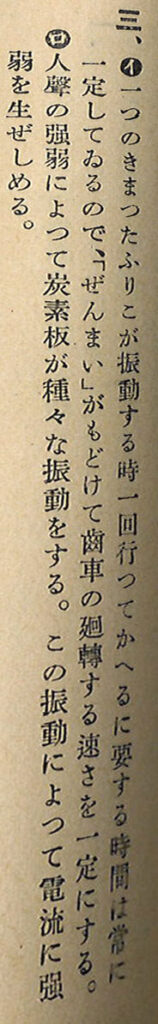 三、㋑一つのきまつたふりこが振動する時一回行つてかへるに要する時間は常に
一定してゐるので、「ぜんまい」がもどけて齒車の廻轉する速さを一定にする。
㋺人聲の强弱によつて炭素板が種々な振動をする。この振動によつて電流に强
弱を生ぜしめる。